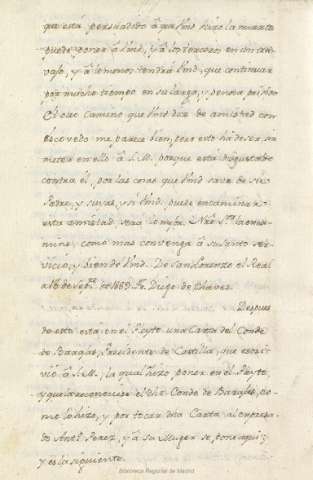 que está persuadido â que Vmd hizo la muerte
puede poner â Vmd, y â los terceros en un tra-
vajo, y â lo menos tendrá Vmd, que continuar
por mucho tiempo en su largo, y penosa prision.
El otro camino que Vmd dice de amistad con
Escovedo me parece bien, pero esto ha de ser sin
meter en ello â S.M. porque está disgustado
contra él, por las cosas que Vmd save de su
Padre, y suyas, y si Vmd. puede encaminar
esta amistad sera lo mejor. Nro Sr. la enca-
mine, como mas convenga â su santo ser-
vicio, y bien de Vmd. De San Lorenzo el Real
a 18 de Sepre. de 1589. Fr. Diego de Chaves.
Despues
de esto está en el Pleyto una Carta del Conde
de Barajas, Presidente de Castilla, que escri-
vió â S.M. la qual hizo poner en el Pleyto,
y que la reconociese el dho Conde de Barajas, co-
mo lo hizo, y por tocar dha Carta al expresa-
do Anto. Perez, y â su Muger se pone aqui;
y es la siguiente.
Biblioteca Regional de Madrid